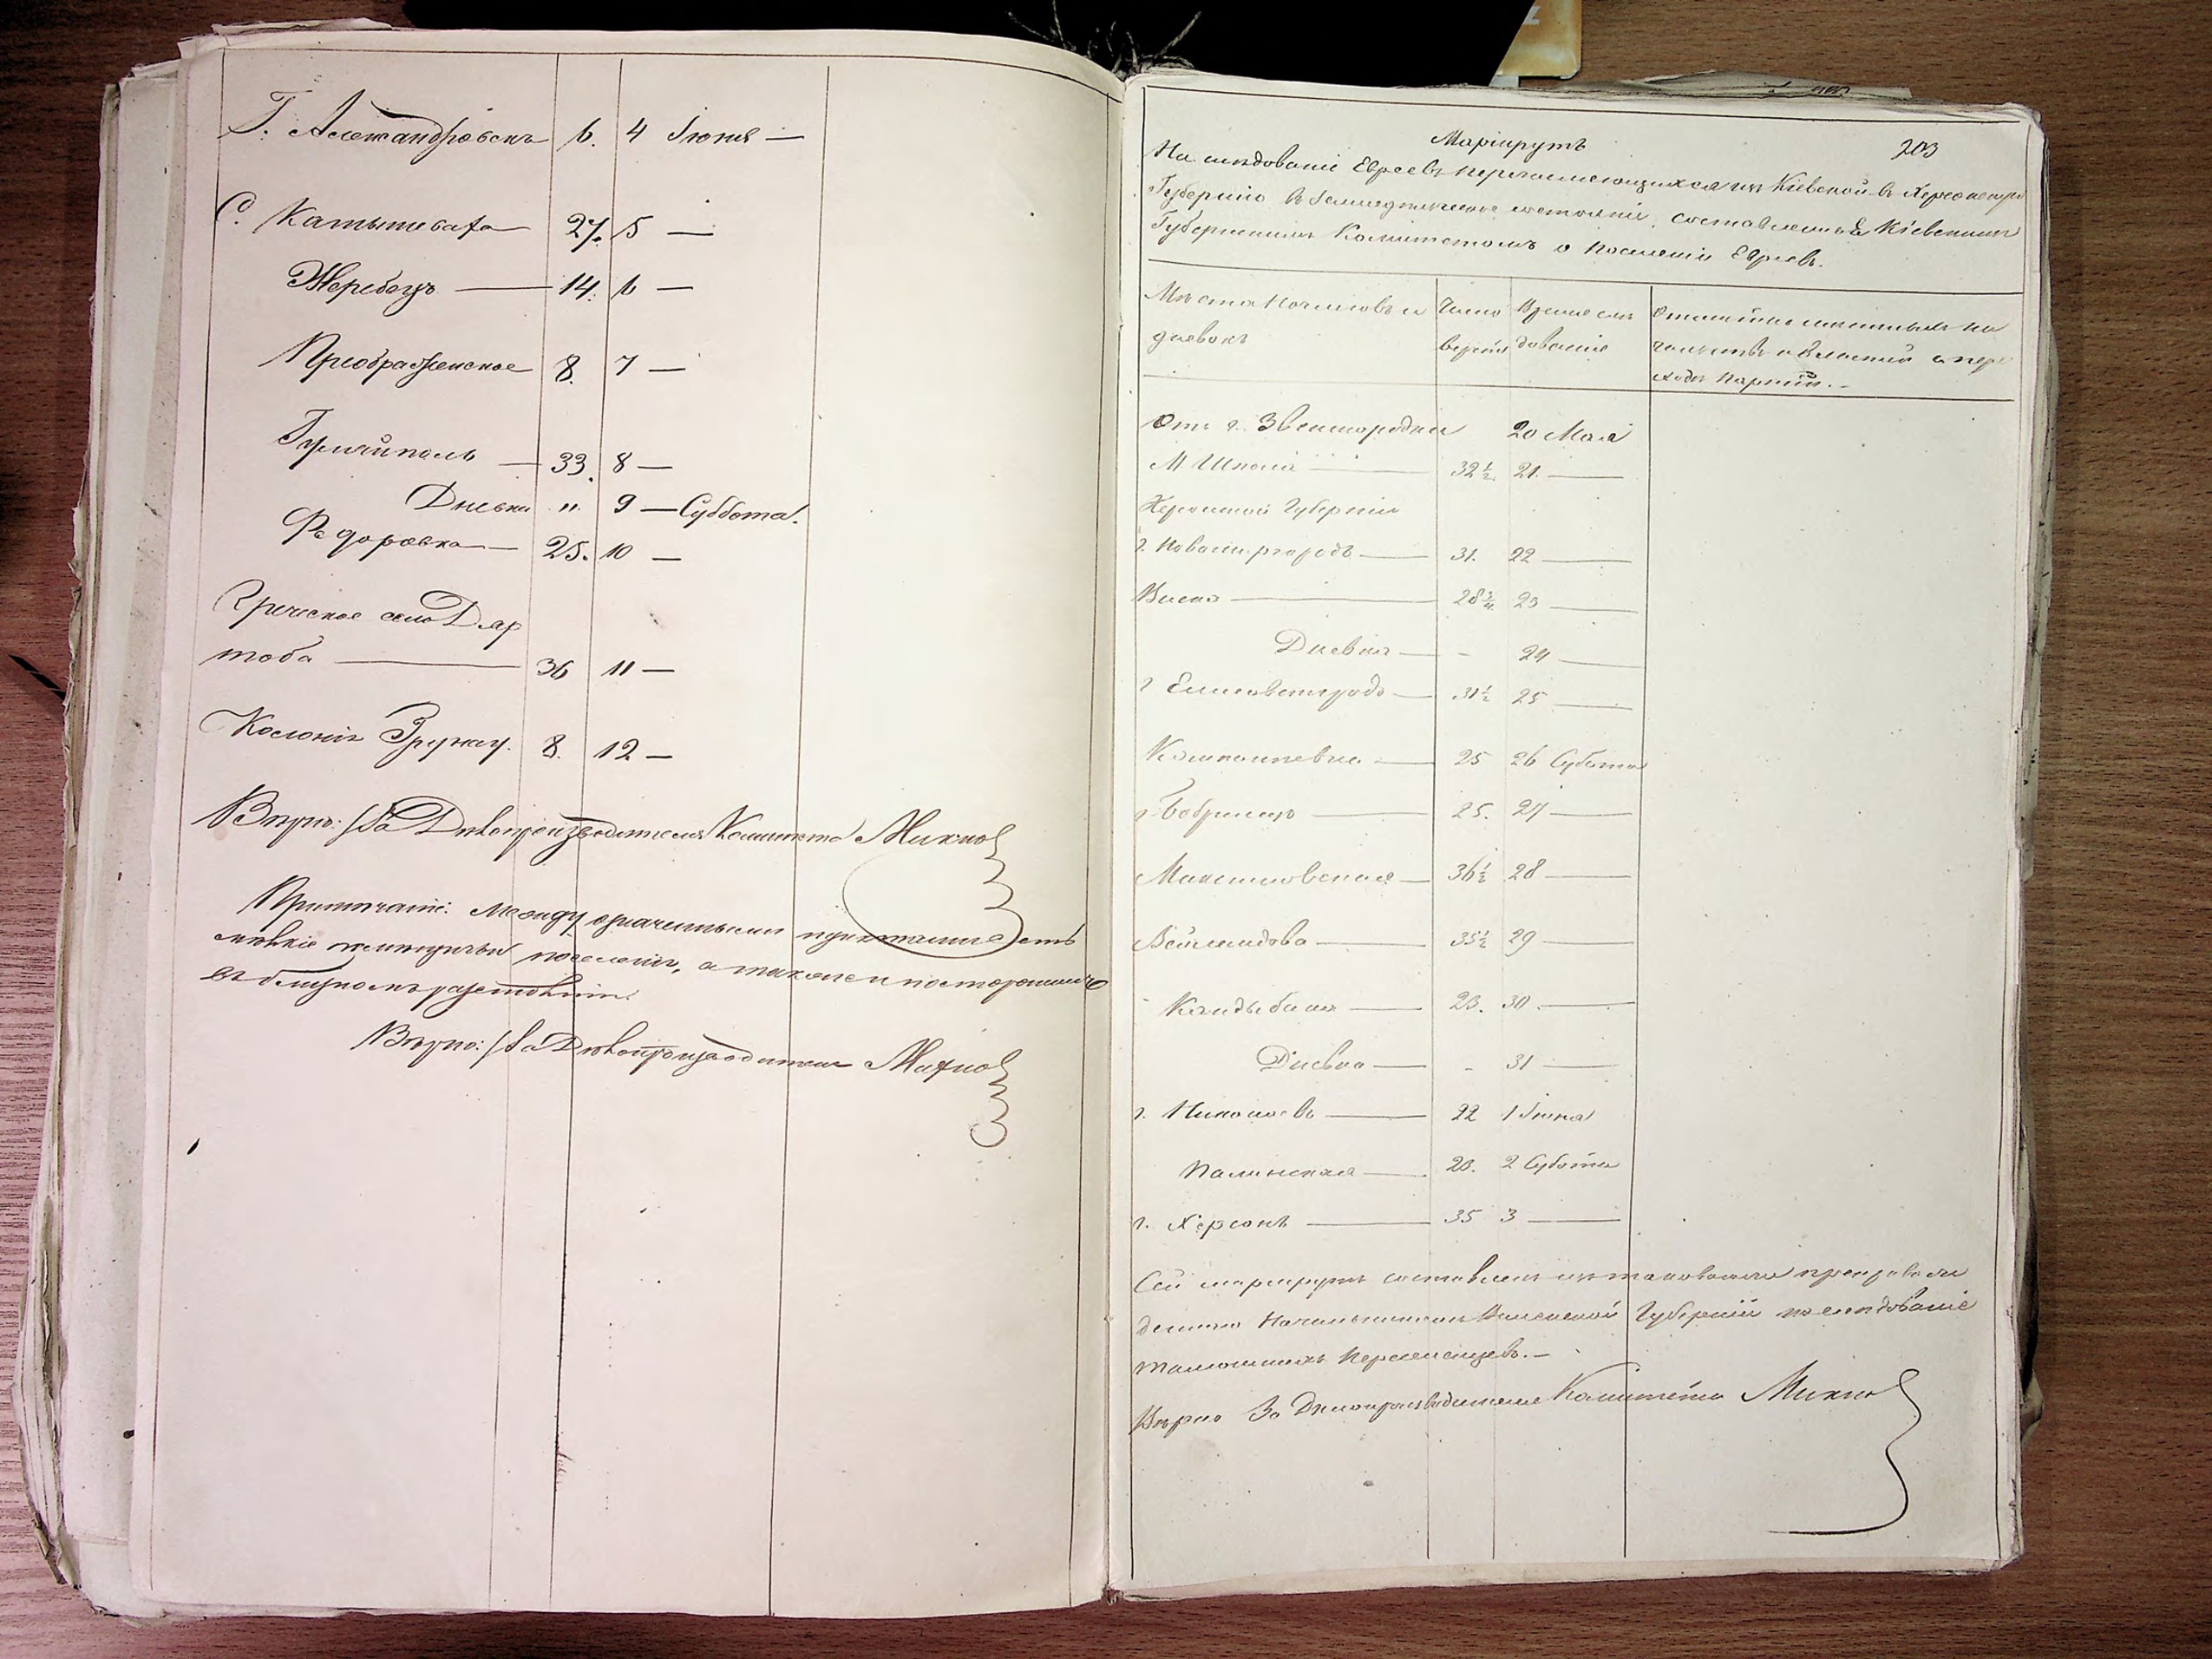 Г. Александровскъ 6. 4 Іюня —
С. Камышеваха 27. 5 —
Жеребецъ — 14. 6 —
Преображенское 8. 7 —
Гуляйполь — 33. 8 —
Дневка „ 9 — Суббота.
Федоровка — 25. 10 —
Греческое село
— 36 11 —
Колонія 8. 12 —
Вѣрно: За Дѣлопроизводителя Комитета Михно
Примѣчаніе: Между означенными пунктами есть
мѣлкіе поселенія, а также и посторонніе
въ близкомъ разстояніи.
Вѣрно: За Дѣлопроизводителя Михно
Маршрутъ 203
На слѣдованіе Евреевъ перечисляющихся изъ Кіевской въ Херсонскую
Губернію въ Земледѣльческое состояніе, составленный Кіевскимъ
Губернскимъ Комитетомъ о поселеніи Евреевъ.
Мѣста ночлеговъ и Число Время слѣ Отмѣтки мѣстныхъ на
дневокъ верстъ дованія и Властей о пере
ходѣ партій. —
Отъ г. Звенигородки 20 Мая
М Шпола — 32½. 21. —
Херсонской Губерніи
г. Новомиргородъ — 31. 22 —
Виска — 28¾ 23 —
Дневка — - 24 —
г Елисаветградъ — 31½ 25 —
Компанѣевка — 25 26 Субота
г. Бобринецъ — 25. 27 —
Максимовская — 36½ 28 —
— 35½ 29 —
Кандыбина — 23. 30. —
Дневка — - 31 —
г. Николаевъ — 22 1 Іюня
— 28. 2 Субота
г. Херсонъ — 35 3 —
Сей маршрутъ составленъ изъ таковаго
Начальникомъ Виленской Губерніи на слѣдованіе
тамошнихъ переселенцевъ. —
Вѣрно За Дѣлопроизводителя Комитета Михно